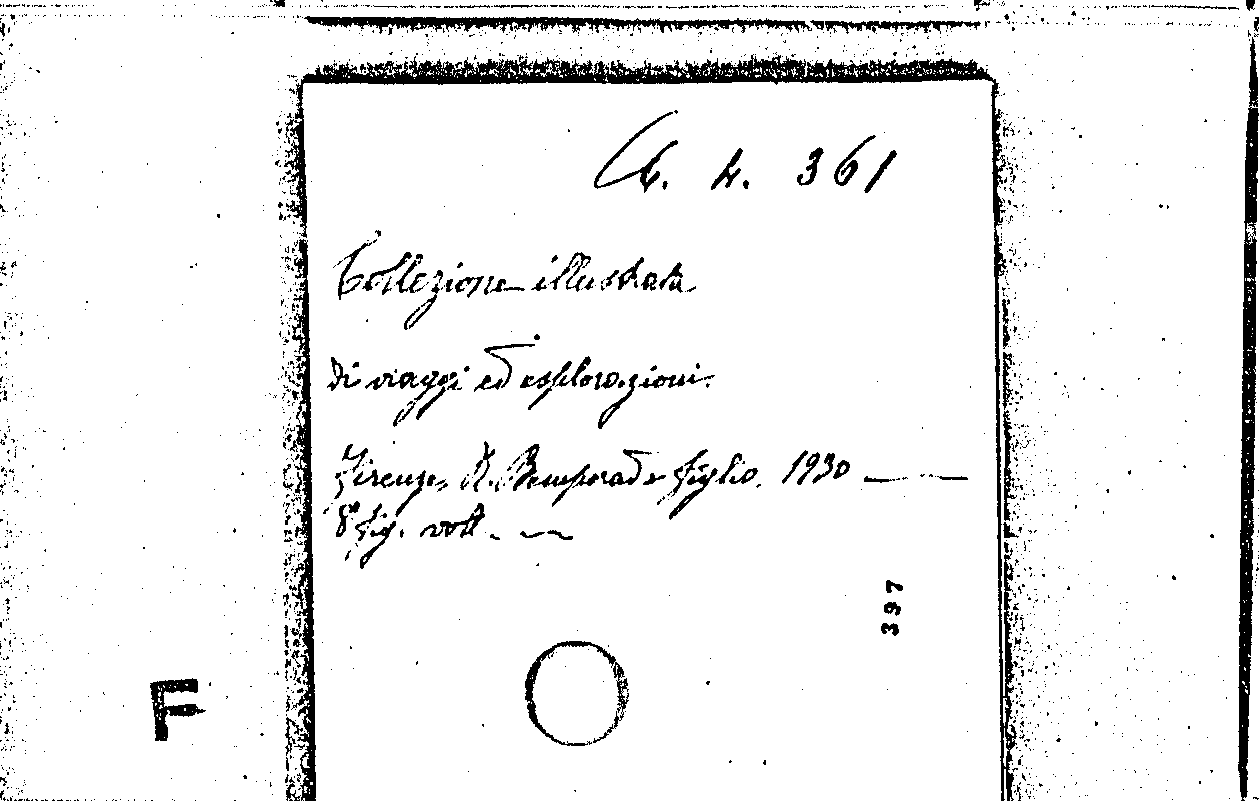 4. 361
Collezione illustrata
di viaggi ed esplorazioni.
Firenze, R. Bemporad e figlio, 1930 —
8° fig. voll. —
397
F